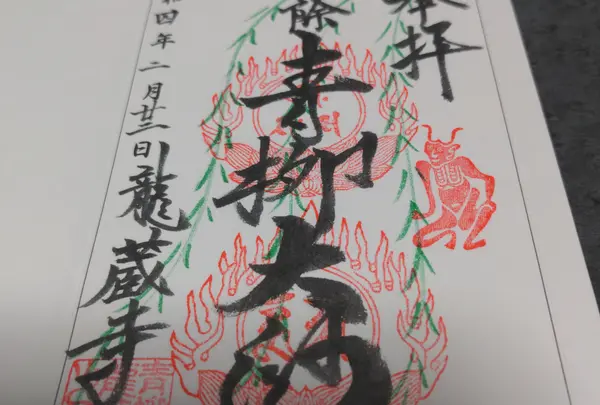 奉拝
除 青柳大師
和四年二月廿二日 龍蔵寺